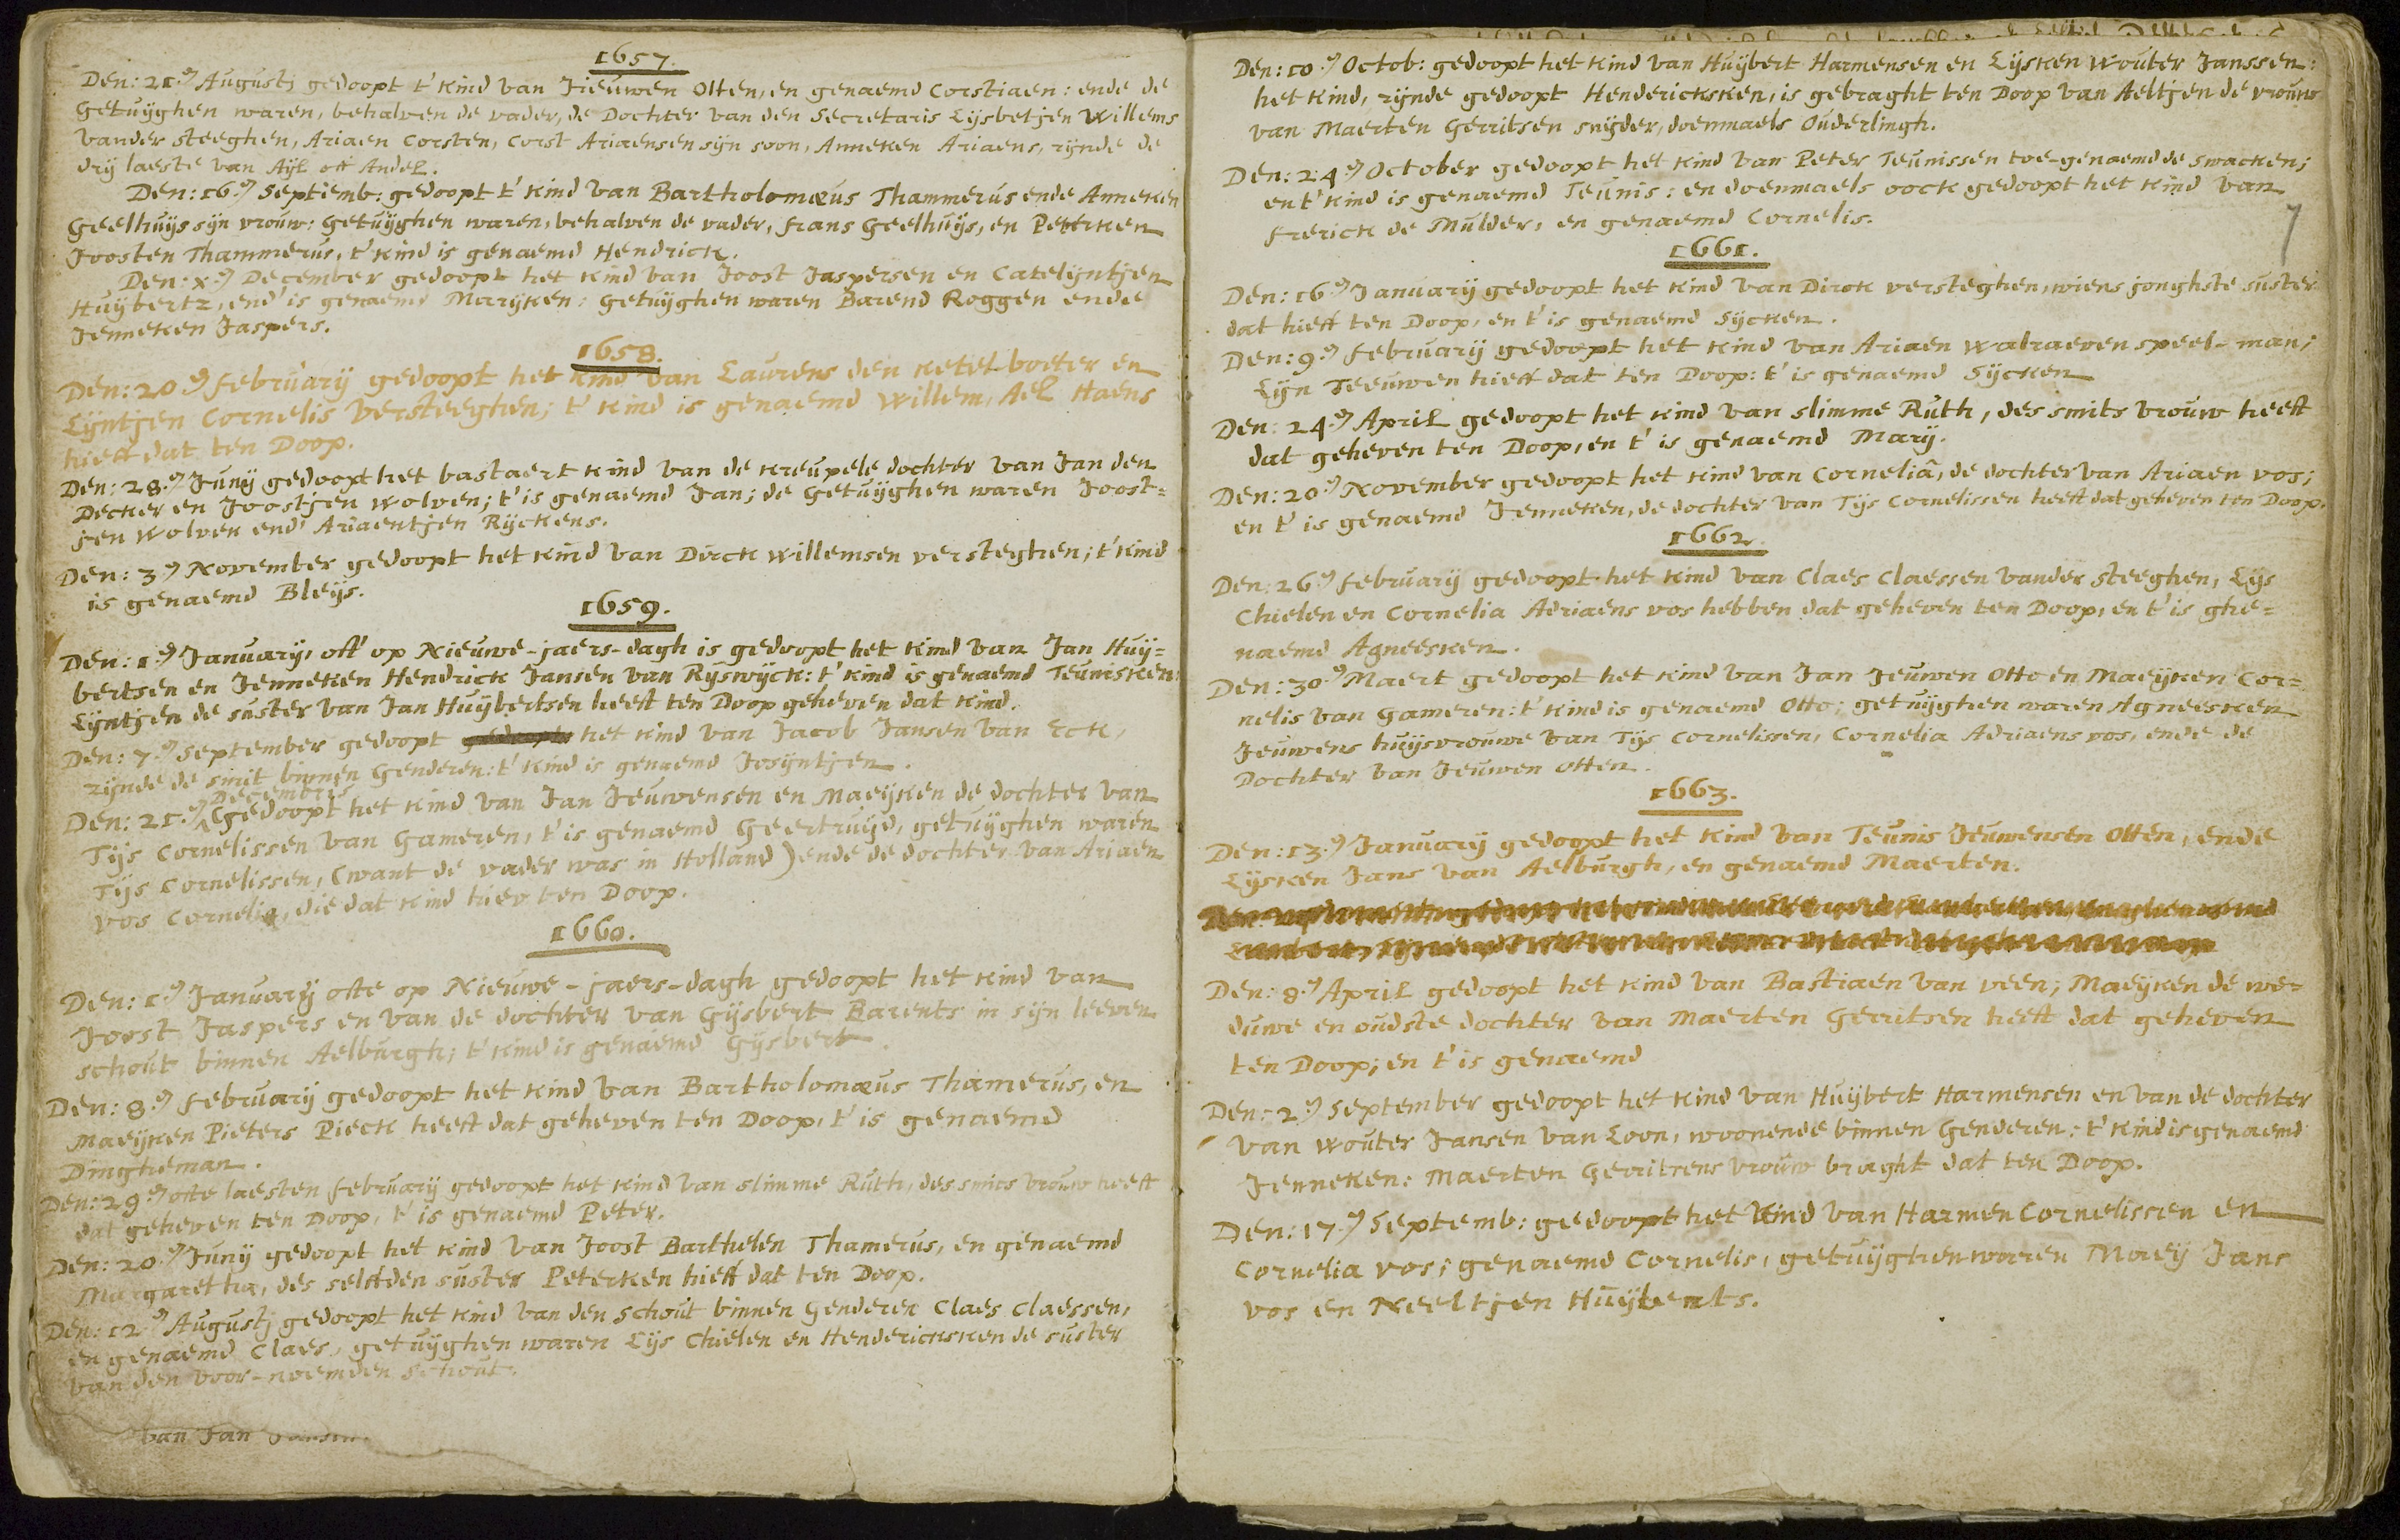 1657.
Den: 21.en Augustj gedoopt t' kind van Jieuwen Otten, en genaemd Corstiaen: ende de
Getuÿghen waren, behalven de vader, de Dochter van den Secretaris Lijsbetjen Willems
vander steeghen, Ariaen Corsten, Corst Ariaensen sijn soon, Anneken Ariaens, zijnde de
drij laeste van Aijl off Andel.
Den: 16.en Septemb: gedoopt t' kind van Bartholomæus Thammerus ende Anneken
Geelhuÿs sijn vrouw: Getuÿghen waren, behalven de vader, frans Geelhuÿs, en Peterken
Joosten Thammerus, t' kind is genaemd Hendrick.
Den: x.en December gedoopt het kind van Joost Jaspersen en Catelijntjen
Huÿbertz, end' is genaemd Marijken: Getuÿghen waren Barend Roggen ende
Jenneken Jaspers.
1658.
Den: 20.en februarij gedoopt het kind van Laurens den ketel-boeter en
Lijntjen Cornelis Versteeghen; t' kind is genaemd Willem, Ael Haens
hieff dat ten Doop.
Den: 28.en Junij gedoopt het bastaert kind van de kreupele dochter van Jan den
Decker en Joostjen Wolven; t' is genaemd Jan; de Getuÿghen waren Joost-
jen Wolven end' Ariaentjen Rijckens.
Den: 3.en November gedoopt het kind van Dirck Willemsen versteghen; t' kind
is genaemd Bleijs.
1659.
Den: 1.en Januarij, off op Nieuwe-jaers-dagh is gedoopt het kind van Jan Huÿ-
bertsen en Jenneken Hendrick Jansen van Rijswijck: t' kind is genaemd Teunisken:
Lijntjen de suster van Jan Huÿbertsen heeft ten Doop geheven dat kind.
Den: 7.en September gedoopt het kind van Jacob Jansen van Eck,
zijnde de smit binnen Genderen: t' kind is genaemd Josijntjen.
Decembris
Den: 21.en Gedoopt het kind van Jan Jeuwensen en Maeijken de dochter van
Tijs Cornelissen van Gameren, t' is genaemd Geertruijd, getuÿghen waren
Tijs Cornelissen, (want de vader was in Holland) ende de dochter van Ariaen
vos Cornelia, die dat kind hiev ten Doop.
1660.
Den: 1.en Januarij ofte op Nieuwe-jaers-dagh gedoopt het kind van
Joost Jaspers en van de dochter van Gijsbert Barents in sijn leeven
schout binnen Aelburgh; t' kind is genaemd Gijsbert.
Den: 8.en februarij gedoopt het kind van Bartholomæus Thamerus, en
Maeijken Pieters Pieck heeft dat geheven ten Doop, t' is genaemd
Dingheman.
Den: 29.en ofte laesten februarij gedoopt het kind van slimme Ruth, des smits vrouw heeft
dat geheven ten Doop, t' is genaemd Peter.
Den: 20.en Junij gedoopt het kind van Joost Barthelen Thamerus, en genaemd
Margaretha, des selffden suster Peterken hieff dat ten Doop.
Den: 12.en Augustj gedoopt het kind van den Schout binnen Genderen Claes Claessen,
en genaemd Claes, getuÿghen waren Lijs Chielen en Hendericksken de suster
van den voor-noemden schout.
van Jan Jansen
7
Den: 10.en Octob: gedoopt het kind van Huÿbert Harmensen en Lijsken Wouter Janssen:
het kind, zijnde gedoopt Hendericksken, is gebraght ten Doop van Aeltjen de vrouw
van Maerten Gerritsen snijder, doenmaels Ouderlingh.
Den: 24.en October gedoopt het kind van Peter Teunissen toe-genaemd de swacken;
en t' kind is genaemd Teunis: en doenmaels oock gedoopt het kind van
frerick de Mulder, en genaemd Cornelis.
1661.
Den: 16.en Januarij gedoopt het kind van Dirck versteghen, wiens jonghste suster
dat hieff ten Doop, en t' is genaemd Sijcken.
Den: 9.en februarij gedoopt het kind van Ariaen Walraeven speel-man;
Lijn Teeuwen hieff dat ten Doop: t' is genaemd Sijcken
Den: 24.en April gedoopt het kind van slimme Ruth, des smits vrouw heeft
dat geheven ten Doop, en t' is genaemd Marij.
Den: 20.en November gedoopt het kind van Corneliâ, de dochter van Ariaen vos;
en t' is genaemd Jenneken, de dochter van Tijs Cornelissen heeft dat geheven ten Doop.
1662.
Den: 26.en februarij gedoopt het kind van Claes Claessen vander steeghen, Lijs
Chielen en Cornelia Adriaens vos hebben dat geheven ten Doop, en t' is ghe-
naemd Agneesken.
Den: 30.en Maert gedoopt het kind van Jan Jeuwen Otto en Maeijken Cor-
nelis van Gameren: t' kind is genaemd Otto; getuÿghen waren Agneesken
Jeuwens huijsvrouwe van Tijs Cornelissen, Cornelia Adriaens vos, ende de
Dochter van Jeuwen Otten.
1663.
Den: 13.en Januarij gedoopt het kind van Teunis Jeuwensen Otten, ende
Lijsken Jans van Aelburgh, en genaemd Maerten.
Den: 8.en April gedoopt het kind van Bastiaen van veen; Maeijken de we-
duwe en oudste dochter van Maerten Gerritsen heeft dat geheven
ten Doop; en t' is genaemd
Den: 2.en September gedoopt het kind van Huÿbert Harmensen en van de dochter
van Wouter Jansen van Loon, woonende binnen Genderen: t' kind is genaemd
Jenneken: Maerten Gerritsens vrouw braght dat ten Doop.
Den: 17.en Septemb: gedoopt het kind van Harmen Cornelissen en
Cornelia vos; genaemd Cornelis, getuÿghen waren Maeij Jans
vos en Neeltjen Huÿberts.